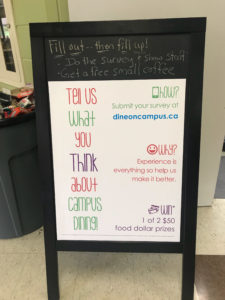 Fill out -- then fill up!
- Do the survey & show staff
- Get a free small coffee
TELL US
WHAT
YOU
THINK
ABOUT
CAMPUS
DINING!
HOW?
Submit your survey at
dineoncampus.ca
WHY?
Experience is
everything so help us
make it better.
WIN
1 of 2 $50
food dollar prizes